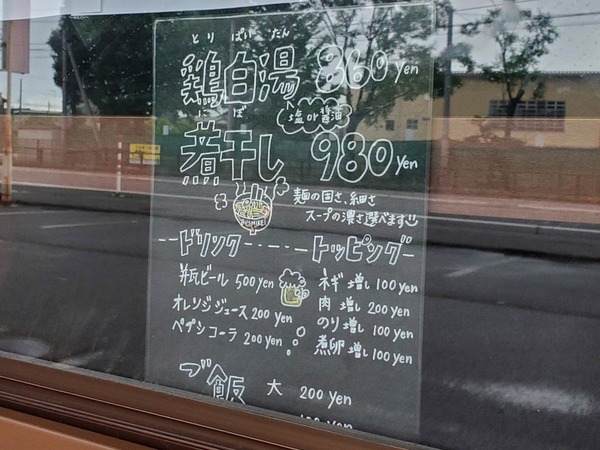 とりぱいたん
鶏白湯 860 yen
塩or醤油
にぼ
煮干し 980 yen
麺の固さ、細さ
スープの濃さ選べます
ドリンク
瓶ビール 500 yen
オレンジジュース 200 yen
ペプシコーラ 200 yen
トッピング
ネギ増し 100 yen
肉増し 200 yen
のり増し 100 yen
煮卵増し 100 yen
ご飯 大 200 yen